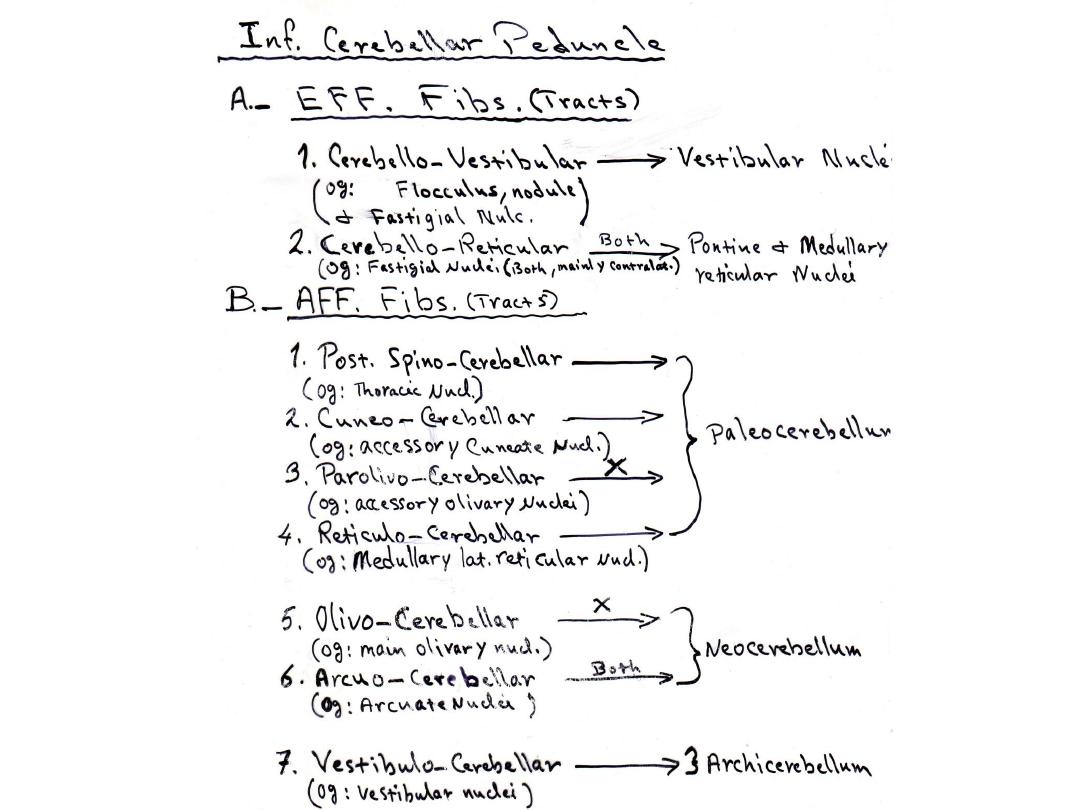 Inf. Cerebellar Peduncle
A._ EFF. Fibs. (Tracts)
1. Cerebello-Vestibular → Vestibular Nucle
(og: Flocculus, nodule)
& Fastigial Nulc.
2. Cerebello-Reticular Both → Pontine & Medullary
(og: Fastigial Nuclei (Both, mainly contralat.) reticular Nuclei
B._ AFF. Fibs. (Tracts)
1. Post. Spino-Cerebellar →
(og: Thoracic Nucl.)
2. Cuneo-Cerebellar →
(og: accessory Cuneate Nucl.)
Paleocerebellum
3. Parolivo-Cerebellar X →
(og: accessory olivary Nuclei)
4. Reticulo-Cerebellar →
(og: Medullary lat. reticular Nucl.)
5. Olivo-Cerebellar X →
(og: main olivary nucl.)
Neocerebellum
6. Arcuo-Cerebellar Both →
(og: Arcuate Nuclei)
7. Vestibulo-Cerebellar → } Archicerebellum
(og: Vestibular nuclei)